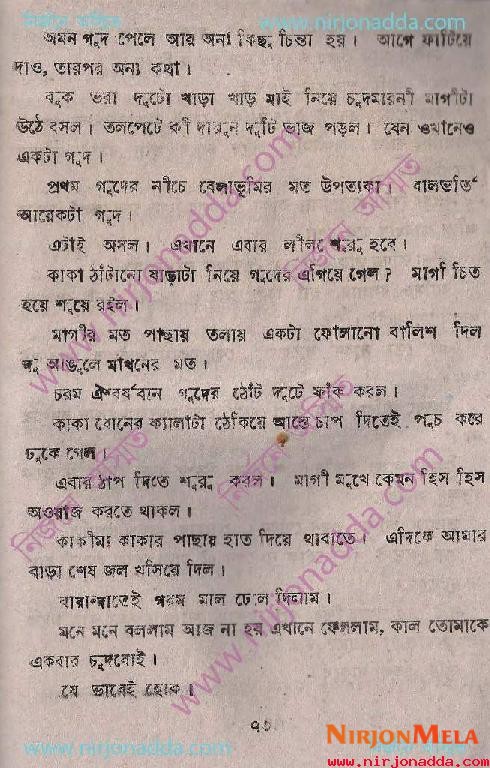 নির্জনে আস্মিত www.nirjonadda.com নির্জনে আস্মিত
অমন গুদ পেলে আর অন্য কিছু চিন্তা হয়। আগে ফাটিয়ে
দাও, তারপর অন্য কথা।
বুক ভরা দুটো খাড়া খাড় মাই নিয়ে চুদমারনী মাগীটা
উঠে বসল। তলপেটে কী দারুন দুটি ভাজ পড়ল। যেন ওখানেও
একটা গুদ।
প্রথম গুদের নীচে বেলাভূমির মত উপত্যকা। বালভর্তি
আরেকটা গুদ।
এটাই অসল। এখানে এবার লীলা শুরু হবে।
কাকা ঠাঁটানো বাড়াটা নিয়ে গুদের এগিয়ে গেল? মাগী চিত
হয়ে শুয়ে রইল।
মাগীর মত পাছায় তলায় একটা ফোলানো বালিশ দিল
দু আঙুলে মাখনের মত।
চরম ঐশ্বর্যবান গুদের ঠোঁট দুটে ফাঁক করল।
কাকা ধোনের ক্যালাটা ঠেকিয়ে আস্তে চাপ দিতেই পুচ করে
ঢুকে গেল।
এবার ঠাপ দিতে শুরু করল। মাগী মুখে কেমন হিস হিস
আওয়াজ করতে থাকল।
কাকীমা কাকার পাছায় হাত দিয়ে থাবাতে। এদিকে আমার
বাড়া শেষ জল খসিয়ে দিল।
বারান্দাতেই গরম মাল ঢেলে দিলাম।
মনে মনে বললাম আজ না হয় এখানে ফেললাম, কাল তোমাকে
একবার চুদবোই।
যে ভাবেই হোক।
www.nirjonadda.com
NIRJONMELA
www.nirjonadda.com
www.nirjonadda.com